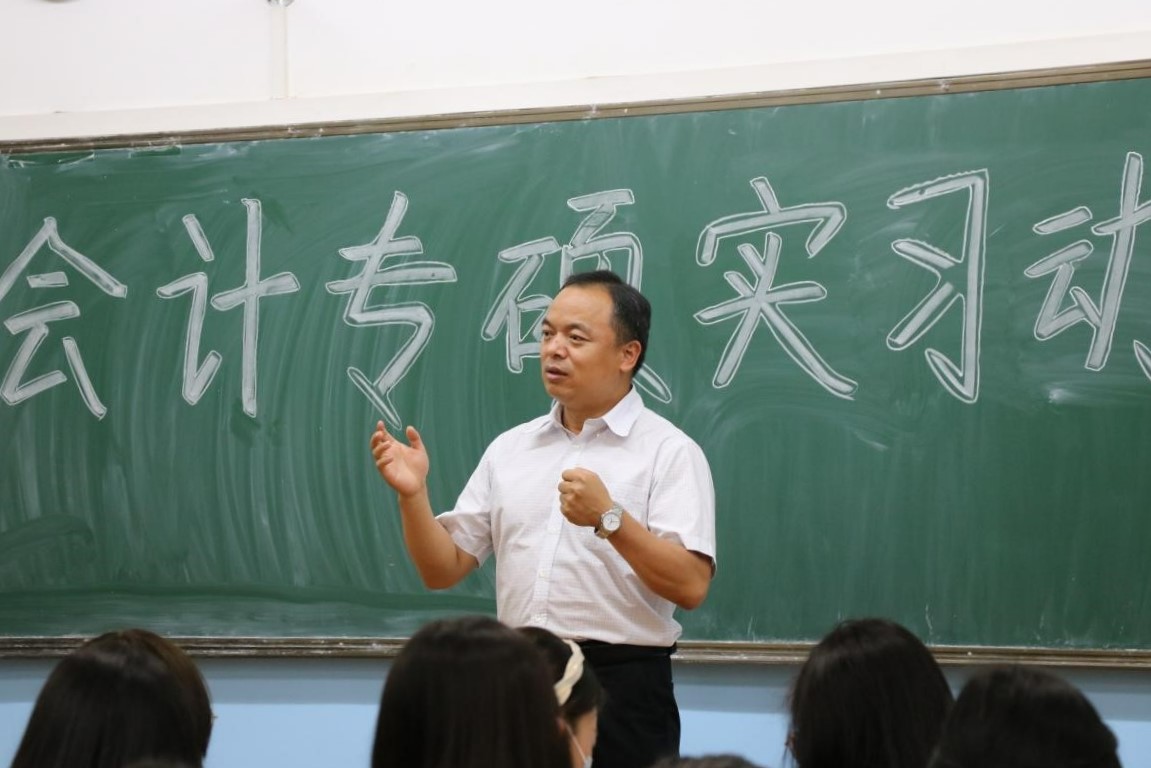 会计专硕实习动